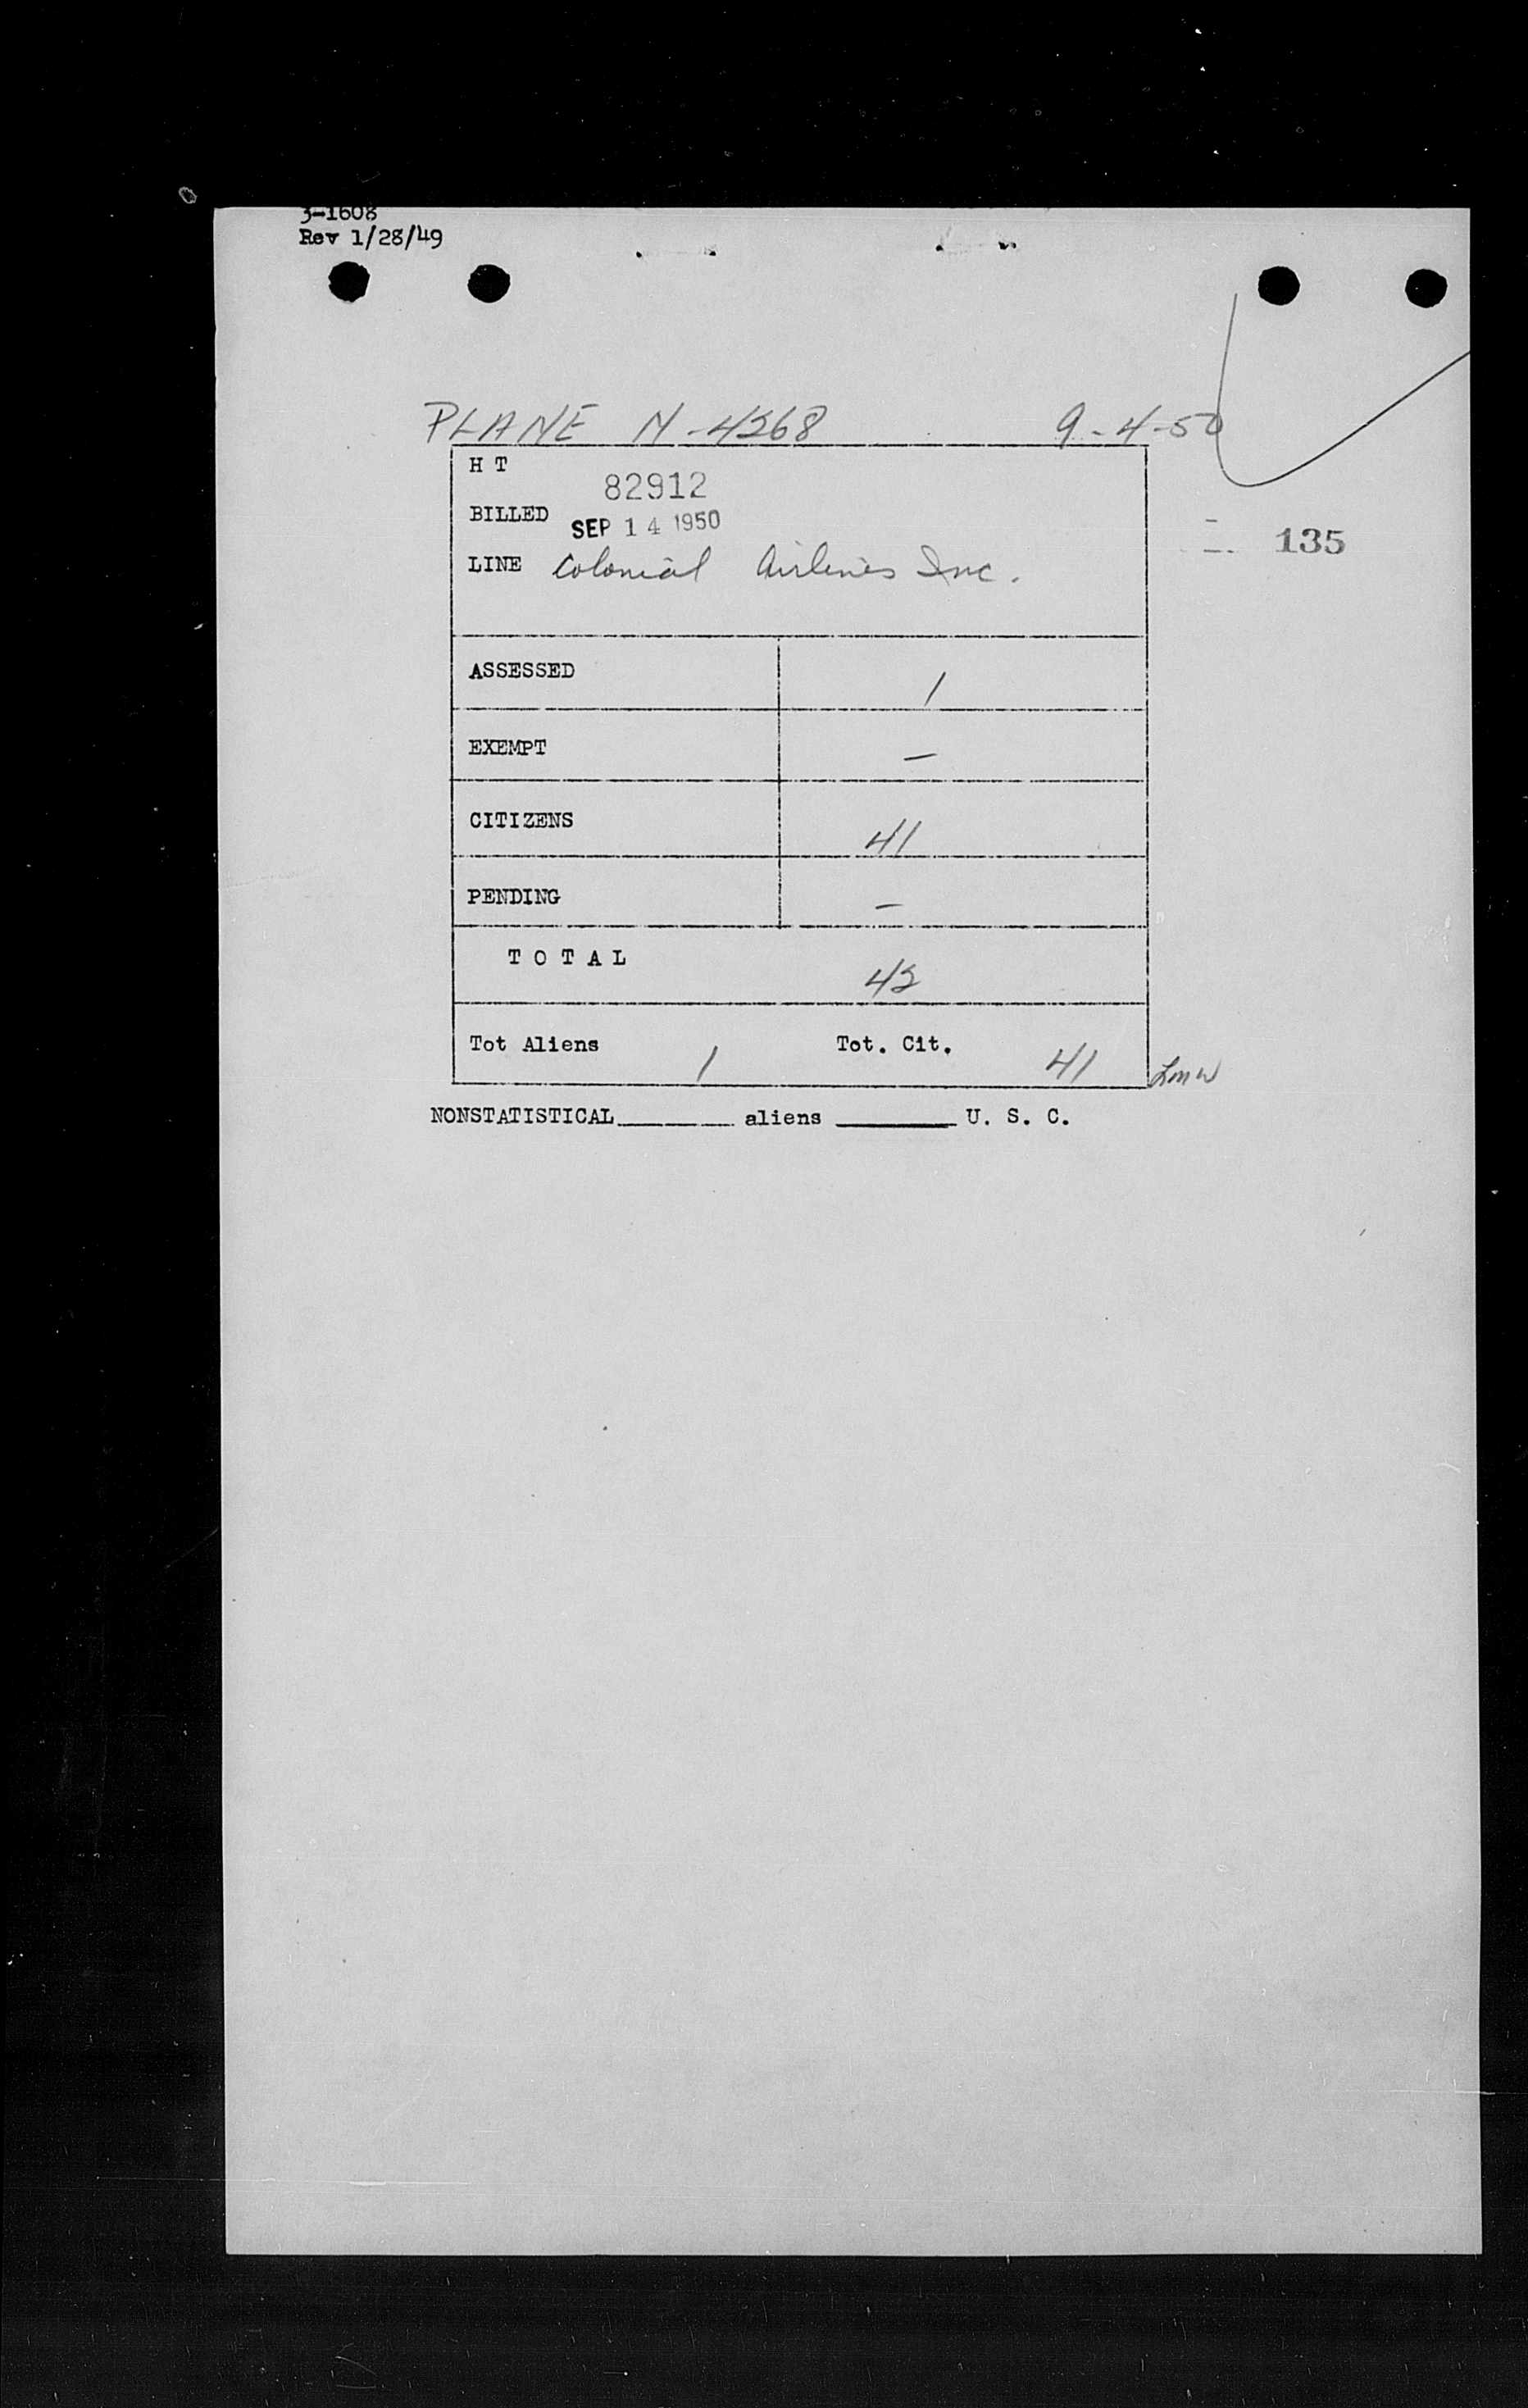 3-1608
Rev 1/28/49
PLANE N-4268 9-4-50
H T
82912
BILLED SEP 14 1950
135
LINE Colonial Airlines Inc.
ASSESSED 1
EXEMPT —
CITIZENS 41
PENDING —
TOTAL 42
Tot Aliens 1 Tot. Cit. 41 LMW
NONSTATISTICAL______ aliens ______ U. S. C.